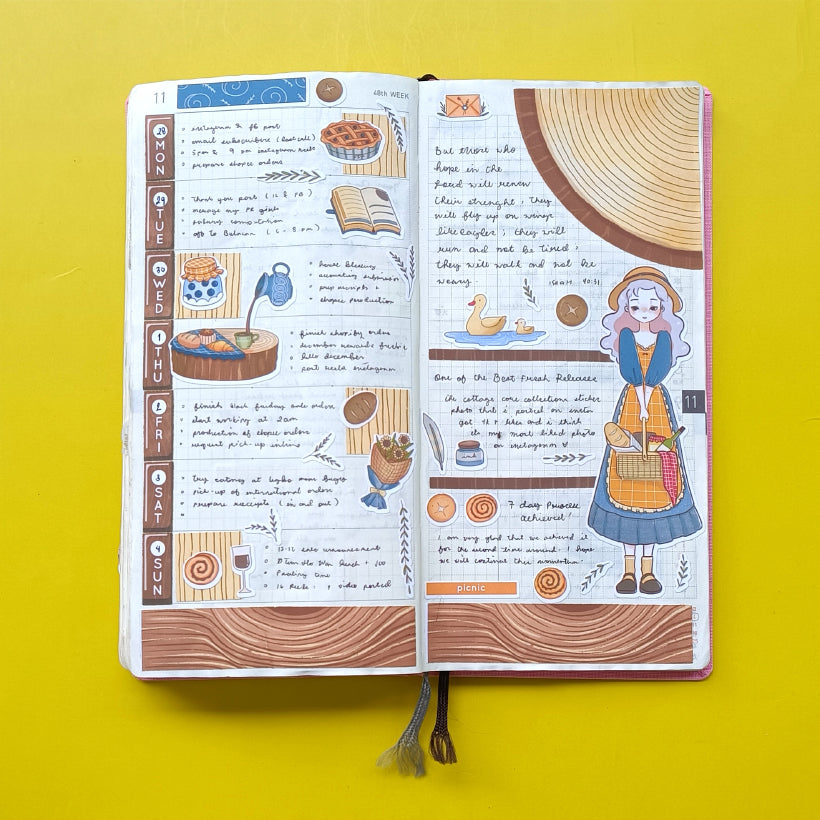 11
48th WEEK
28
MON
instagram & fb post
email subscribers (last call)
5pm & 9 pm instagram reels
prepare shopee orders
29
TUE
Thank you post (IG & FB)
message my PR girls
off to Bulacan (6 - 8 pm)
30
WED
house blessing
accounting submission
prep receipts &
shopee production
1
THU
finish shopify orders
december rewards freebie
hello december
post reels instagram
2
FRI
finish black friday sale orders
start working at 2am
production of shopee orders
request pick-up
3
SAT
try eating at
pick-up of international orders
prepare receipts (in and out)
4
SUN
12.12 sale announcement
Packing time
16 Reels
But those who
hope in the
Lord will renew
their strenght, they
will fly up on wings
like eagles; they will
run and not be tired,
they will walk and not be
weary.
ISAIAH 40:31
One of the Best Fresh Releases
the cottage core collection sticker
photo that i posted on insta
got likes and i think
its my most liked photo
on instagram
ink
11
7 day Process
achieved!
I am very glad that we achieved it
for the second time around. I hope
we will continue this momentum.
picnic